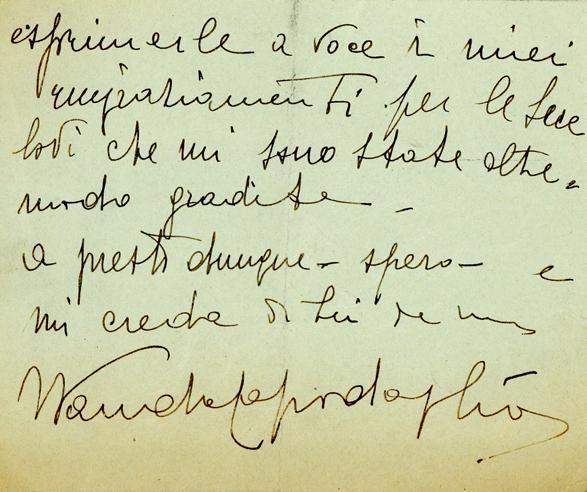 esprimerle a voce i miei
ringraziamenti per le Sue
lodi che mi sono state oltre-
modo gradite -
A presto dunque - spero - e
mi creda di Lei
Wanda Capodaglio